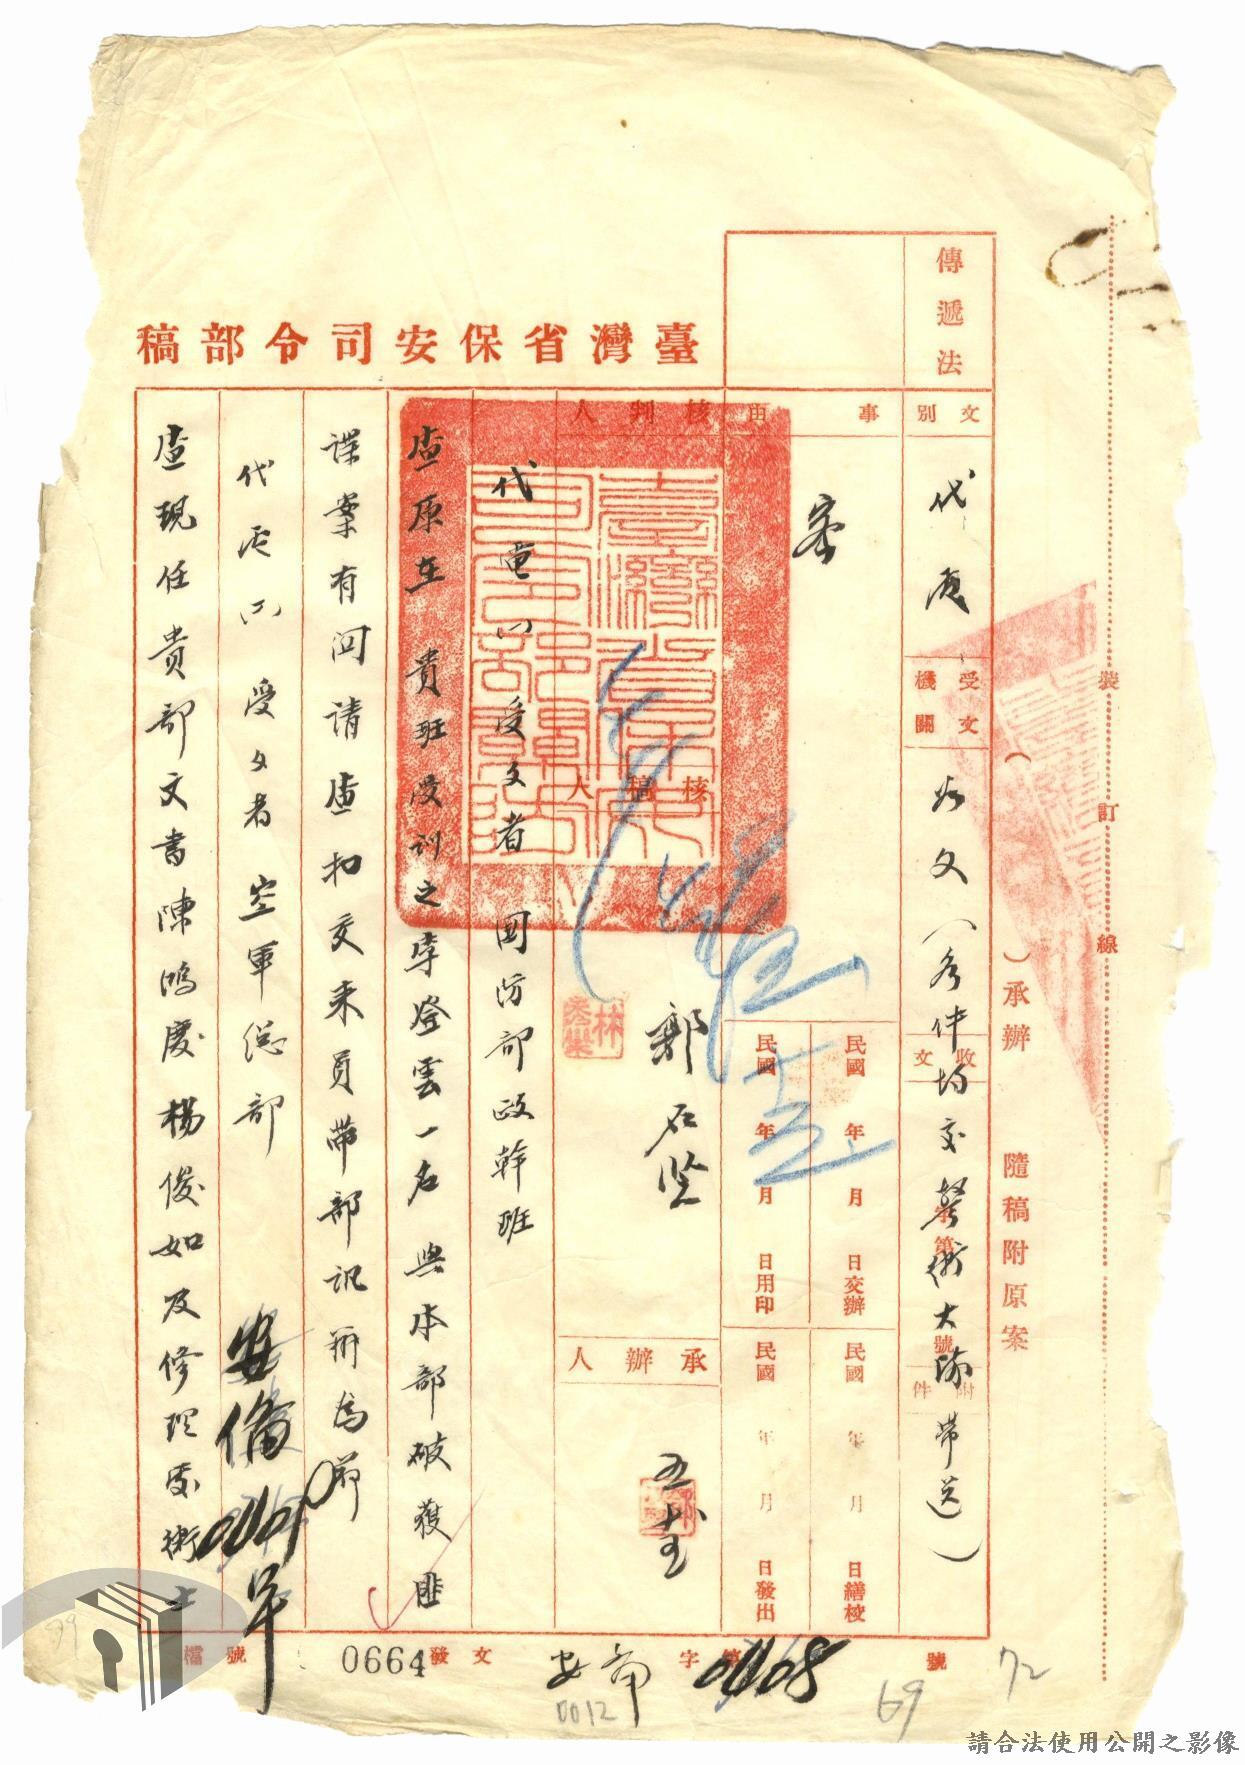 臺灣省保安司令部稿
傳遞法
文別
代電
受文機關
如文(多件均交警衛大隊帶送)
收文
字第
號
附件
事由
核判人
核稿人
承辦人
民國 年 月 日交辦
民國 年 月 日繕校
民國 年 月 日用印
民國 年 月 日發出
代電(一)受文者國防部政幹班
查原在貴班受訓之李登雲一名與本部破獲匪
諜案有關請查扣交來員帶部訊辦為荷
代電(二)受文者空軍總部
查現任貴部文書陳鴻慶楊俊如及修理家術士
檔號
0664
發文
安
字第
號
0012
69
72
99
裝訂線
( )承辦
隨稿附原案
請合法使用公開之影像